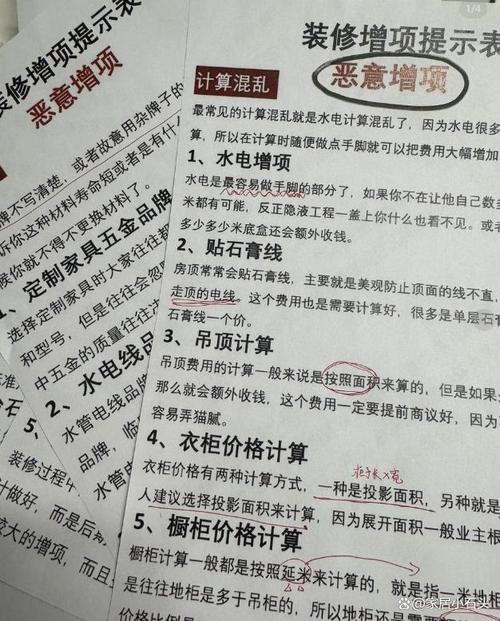 1/4
装修增项提示表
恶意增项
牌不写清楚，或者故意用杂牌子的
诉你这种材料寿命短或者是有什
候你就不得不更换材料了。
1、定制家具五金品牌
选择定制家具时大家往往都
和型号，但是往往会忽
中五金的质量往往决
2、水电线品牌
水管电线品牌
品牌，临
水管电线
5、
装修过程中
计做好，而是后
较大的增项，而且
装修增项提示表
恶意增项
计算混乱
最常见的计算混乱就是水电计算混乱了，因为水电很多
算，所以在计算时随便做点手脚就可以把费用大幅增加
1、水电增项
水电是最容易做手脚的部分了，如果你不在让他自己数
米都有可能，反正隐液工程一盖上你什么也看不见。或者
多少多少米底盒还会额外收钱。
2、贴石膏线
房顶常常会贴石膏线，主要就是美观防止顶面的线不直
走顶的电线。这个费用也是需要计算好，很多是单层石
石膏线一个价。
3、吊顶计算
吊顶费用的计算一般来说是按照面积来算的，但是如果
那么就会额外收钱，这个费用一定要提前商议好，因为
容易弄猫腻。
4、衣柜价格计算
衣柜价格有两种计算方式，一种是投影面积，另种就是
人建议选择投影面积来计算，因为展开面积一般业主根
5、橱柜价格计算
橱柜计算一般都是按照延米来计算的，就是指一米地柜
是往往地柜是多于吊柜的，所以地柜还是需要
价格比例是
@家居小石头